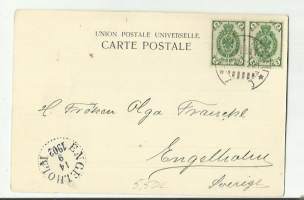 UNION POSTALE UNIVERSELLE.
CARTE POSTALE
H. Fröken Olga Francke
Engelholm
Sverige
ENGELHOLM
14
9
1902
5,50€